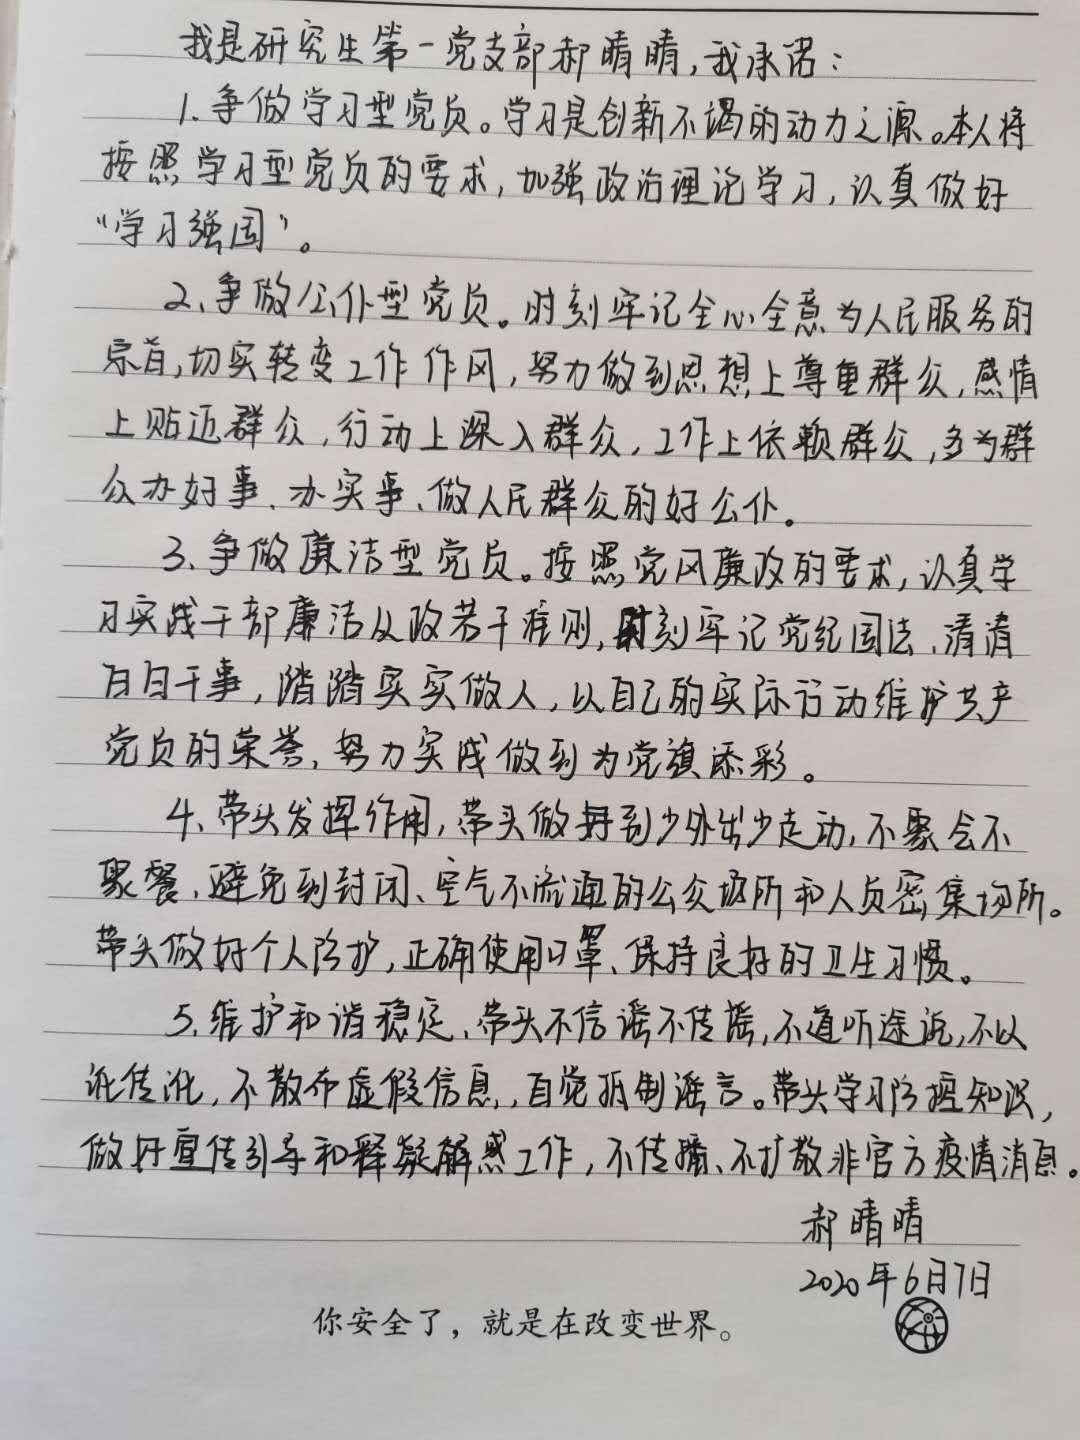 我是研究生第一党支部郝晴晴,我承诺:
1.争做学习型党员。学习是创新不竭的动力之源。本人将
按照学习型党员的要求,加强政治理论学习,认真做好
“学习强国”。
2、争做公仆型党员。时刻牢记全心全意为人民服务的
宗旨,切实转变工作作风,努力做到思想上尊重群众,感情
上贴近群众,行动上深入群众,工作上依赖群众,多为群
众办好事、办实事、做人民群众的好公仆。
3、争做廉洁型党员。按照党风廉政的要求,认真学
习实践干部廉洁从政若干准则,时刻牢记党纪国法、清清
白白干事,踏踏实实做人,以自己的实际行动维护共产
党员的荣誉,努力实践做到为党旗添彩。
4、带头发挥作用,带头做好到少外出少走动,不聚会不
聚餐、避免到封闭、空气不流通的公众场所和人员密集场所。
带头做好个人防护,正确使用口罩、保持良好的卫生习惯。
5、维护和谐稳定、带头不信谣不传谣,不道听途说,不以
讹传讹,不散布虚假信息,自觉抵制谣言。带头学习防控知识,
做好宣传引导和释疑解惑工作,不传播、不扩散非官方疫情消息。
郝晴晴
2020年6月7日
你安全了，就是在改变世界。